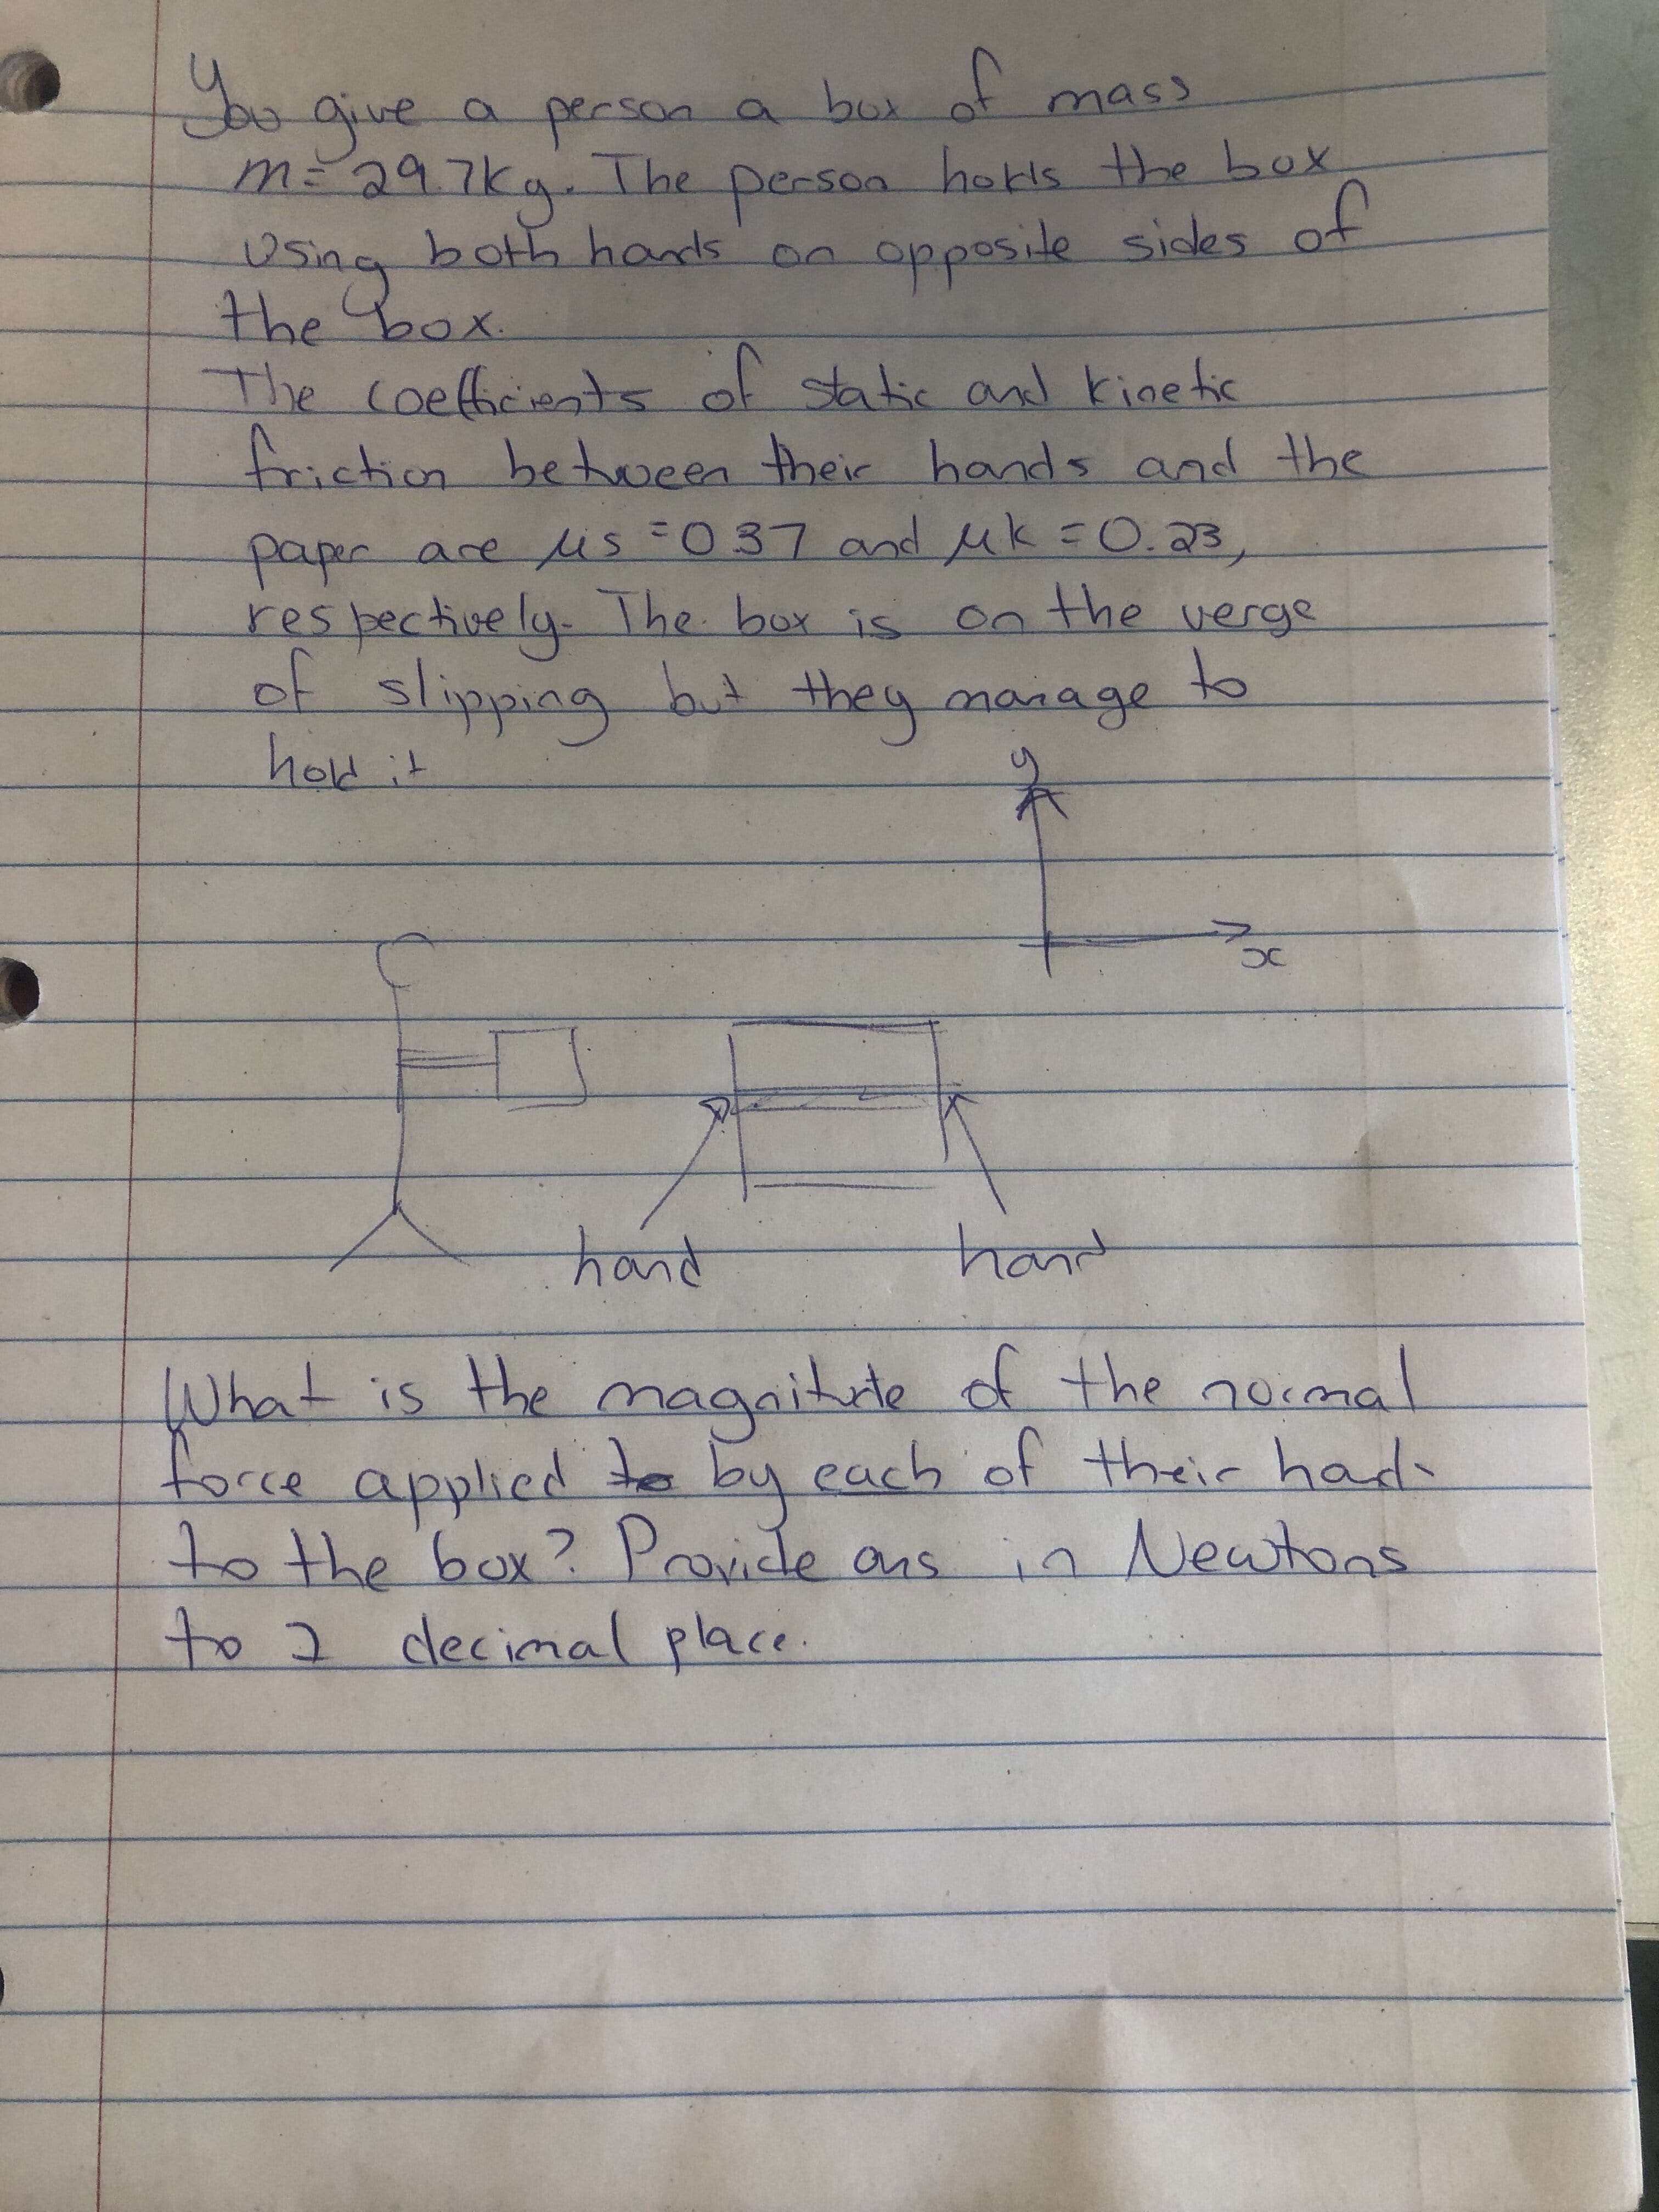 You give a person a box of mass
m = 29.7kg. The person holds the box
using both hands on opposite sides of
the box.
The coefficients of static and kinetic
friction between their hands and the
paper are μs = 0.37 and μk = 0.23,
respectively. The box is on the verge
of slipping but they manage to
hold it
y
x
hand hand
What is the magnitude of the normal
force applied to by each of their hands
to the box? Provide ans in Newtons
to 1 decimal place.